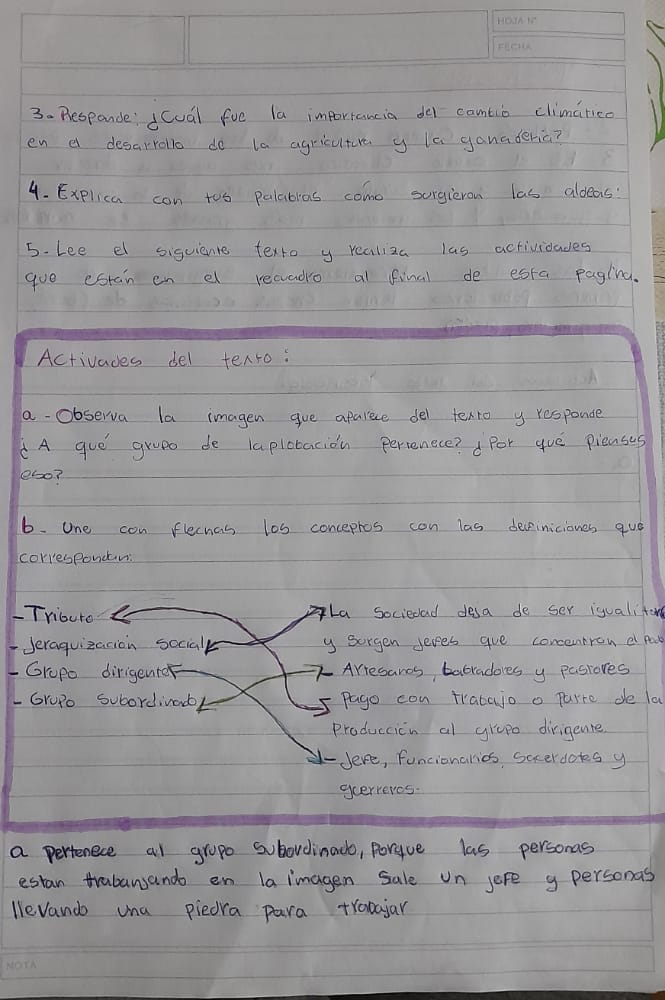 HOJA N°
FECHA
3- Responde: ¿Cuál fue la importancia del cambio climático
en el desarrollo de la agricultura y la ganadería?
4- Explica con tus palabras como surgieron las aldeas:
5- Lee el siguiente texto y realiza las actividades
que están en el recuadro al final de esta pagina.
Activades del texto:
a - Observa la imagen que aparece del texto y responde
¿A qué grupo de la plobación pertenece? ¿Por qué piensas
eso?
b- Une con flechas los conceptos con las definiciones que
correspondan:
- Tributo
- Jeraquización social
- Grupo dirigente
- Grupo subordinado
- La sociedad deja de ser igualitar
y surgen jefes que concentran el
- Artesanos, labradores y pastores
- Pago con trabajo o parte de la
producción al grupo dirigente.
- Jefe, funcionarios, sacerdotes y
guerreros.
a pertenece al grupo subordinado, porque las personas
estan trabanjando en la imagen sale un jefe y personas
llevando una piedra para trabajar
NOTA